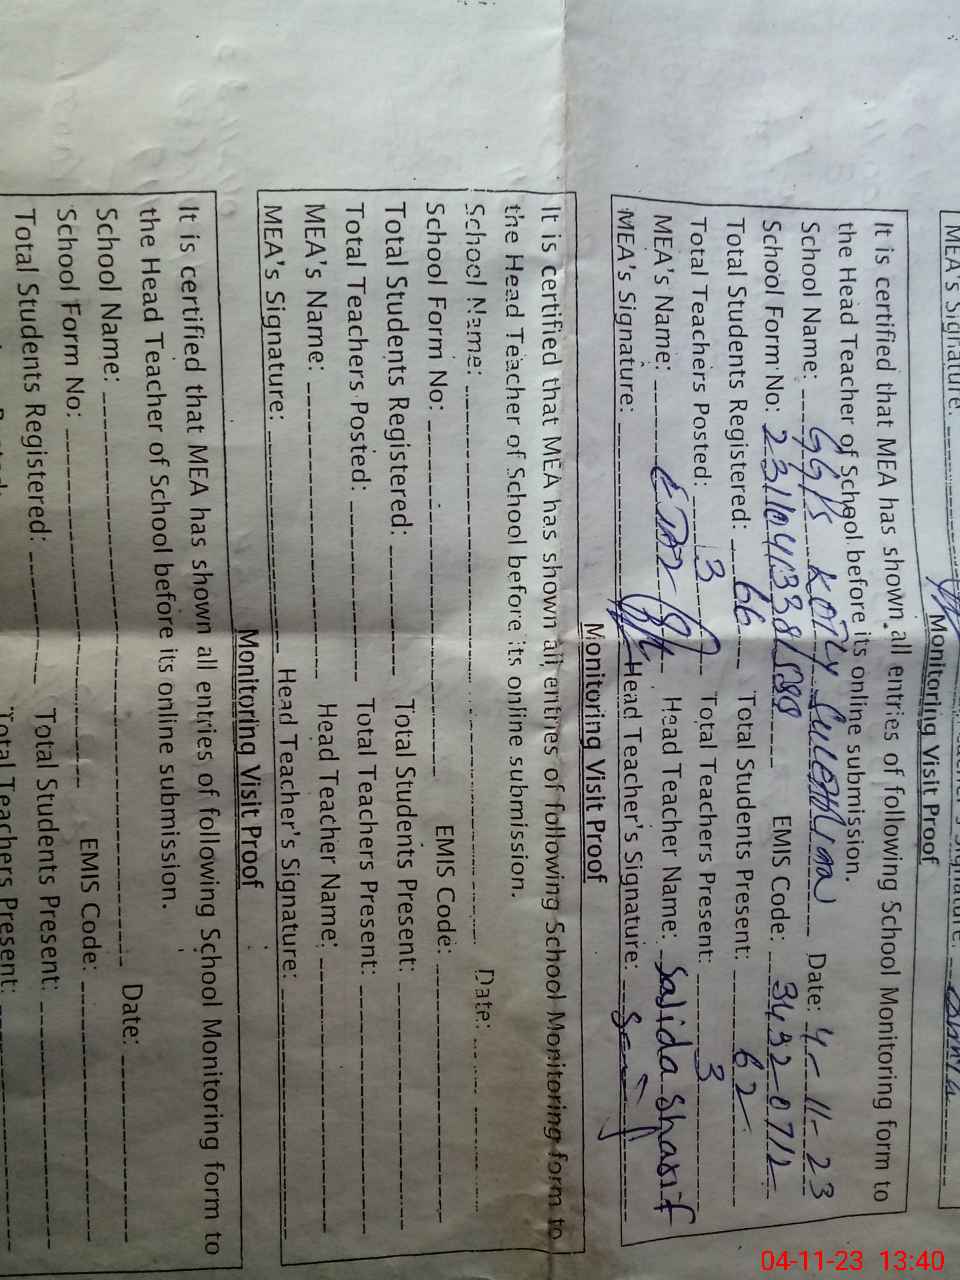 MEA's Signature:
Monitoring Visit Proof
It is certified that MEA has shown all entries of following School Monitoring form to
the Head Teacher of School before its online submission.
School Name: GG/s Kotly Date: 4-11-23
School Form No: EMIS Code: 3432-0712
Total Students Registered: 66 Total Students Present: 62
Total Teachers Posted: 3 Total Teachers Present: 3
MEA's Name: Head Teacher Name: Sajida Sharif
MEA's Signature: Head Teacher's Signature:
Monitoring Visit Proof
It is certified that MEA has shown all entries of following School Monitoring form to
the Head Teacher of School before its online submission.
School Name: Date:
School Form No: EMIS Code:
Total Students Registered: Total Students Present:
Total Teachers Posted: Total Teachers Present:
MEA's Name: Head Teacher Name:
MEA's Signature: Head Teacher's Signature:
Monitoring Visit Proof
It is certified that MEA has shown all entries of following School Monitoring form to
the Head Teacher of School before its online submission.
School Name: Date:
School Form No: EMIS Code:
Total Students Registered: Total Students Present:
Total Teachers Present:
04-11-23 13:40